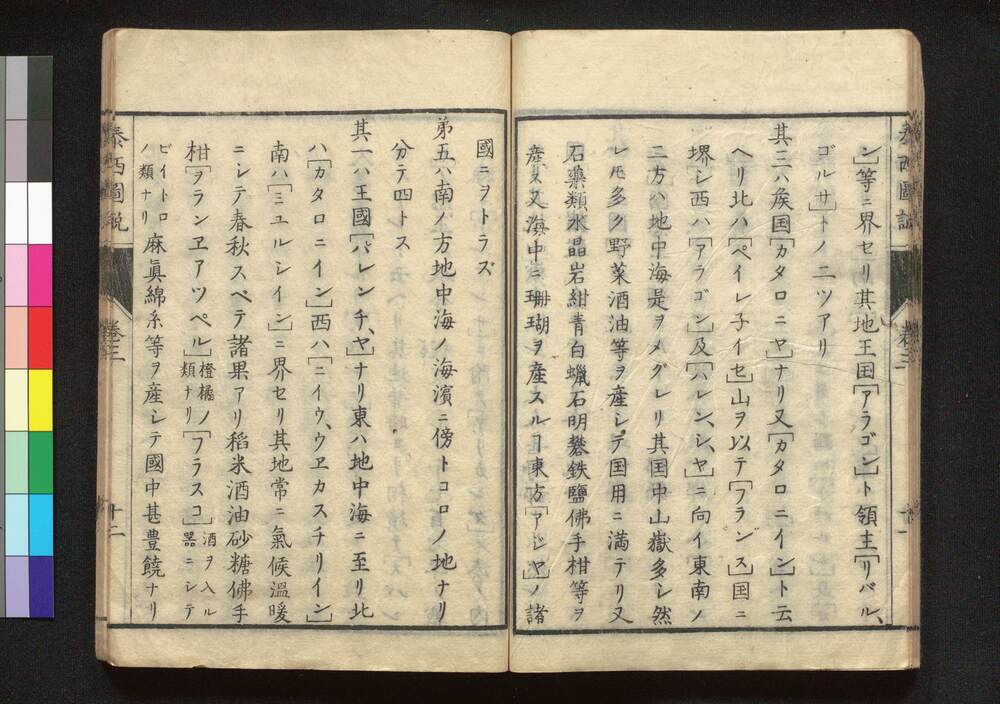 ン］等ニ界セリ其地王国［アラゴン］ト領主［リバル、
ゴルサ］トノ二ツアリ
其三ハ矦国［カタロニヤ］ナリ又［カタロニイン］ト云
ヘリ北ハ［ペイレ子イセ］山ヲ以テ［フランス］国ニ
堺シ西ハ［アラゴン］及［ハレン、シ、ヤ］ニ向イ東南ノ
二方ハ地中海是ヲメグレリ其国中山嶽多シ然
レ𪜈多ク野菜酒油等ヲ産シテ国用ニ満テリ又
石藥類水晶岩紺青白蠟石明礬鉄鹽佛手柑等ヲ
産ス又海中ニ珊瑚ヲ産スルヿ東方［アジヤ］ノ諸
泰西圖説
巻三
十一
國ニヲトラズ
弟五ハ南ノ方地中海ノ海濱ニ傍トコロノ地ナリ
分テ四トス
其一ハ王國［バレンチ、ヤ］ナリ東ハ地中海ニ至リ北
ハ［カタロニイン］西ハ［ニイウ、ウヱカスチリイン］
南ハ［ミユルシイン］ニ界セリ其地常ニ氣候溫暖
ニシテ春秋スベテ諸果アリ稻米酒油砂糖佛手
柑［ヲランヱアツペル］橙橘ノ類ナリ［フラスコ］酒ヲ入ル器ニシテ
ビイトロノ類ナリ麻眞綿糸等ヲ産シテ國中甚豊饒ナリ
泰西圖説
巻三
十二